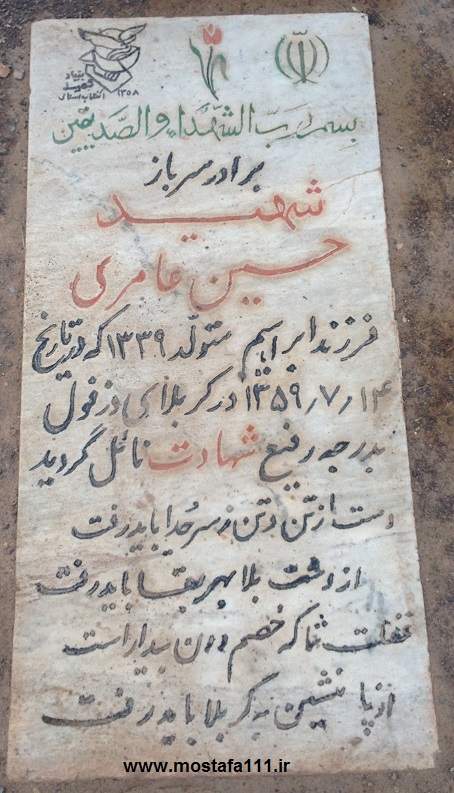 بنیاد
شهید
انقلاب اسلامی
۱۳۵۸
بسم رب الشهداء والصدیقین
برادر سرباز
شهید
حسین عامری
فرزند ابراهیم متولد ۱۳۳۹ که در تاریخ
۱۳۵۹٫۷٫۱۴ در کربلای دزفول
بدرجه رفیع شهادت نائل گردید
دست از تن و تن ز سر جدا باید رفت
از دشت بلا بهر بقا باید رفت
که خصم دون بیدار است
از پا منشین به کربلا باید رفت
www.mostafa111.ir